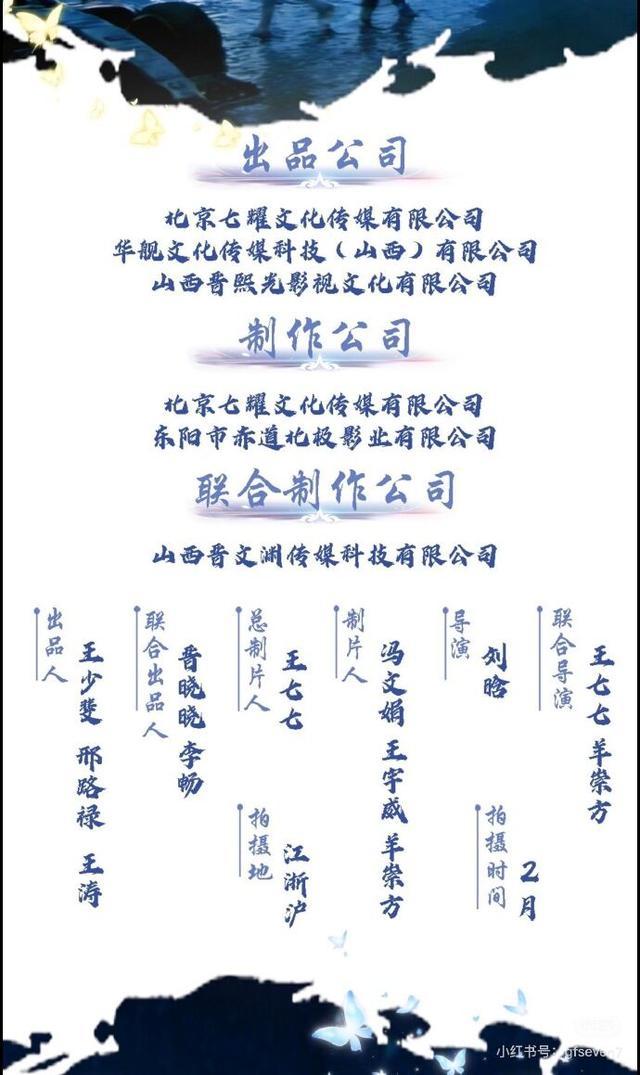 出品公司
北京七耀文化传媒有限公司
华舰文化传媒科技（山西）有限公司
山西晋熙光影视文化有限公司
制作公司
北京七耀文化传媒有限公司
东阳市赤道北极影业有限公司
联合制作公司
山西晋文渊传媒科技有限公司
出品人
王少斐 邢路禄 王涛
联合出品人
晋晓晓 李畅
总制片人
王七七
制片人
冯文娟 王宇威 羊崇方
导演
刘晗
联合导演
王七七 羊崇方
拍摄地
江浙沪
拍摄时间
2月
小红书号：